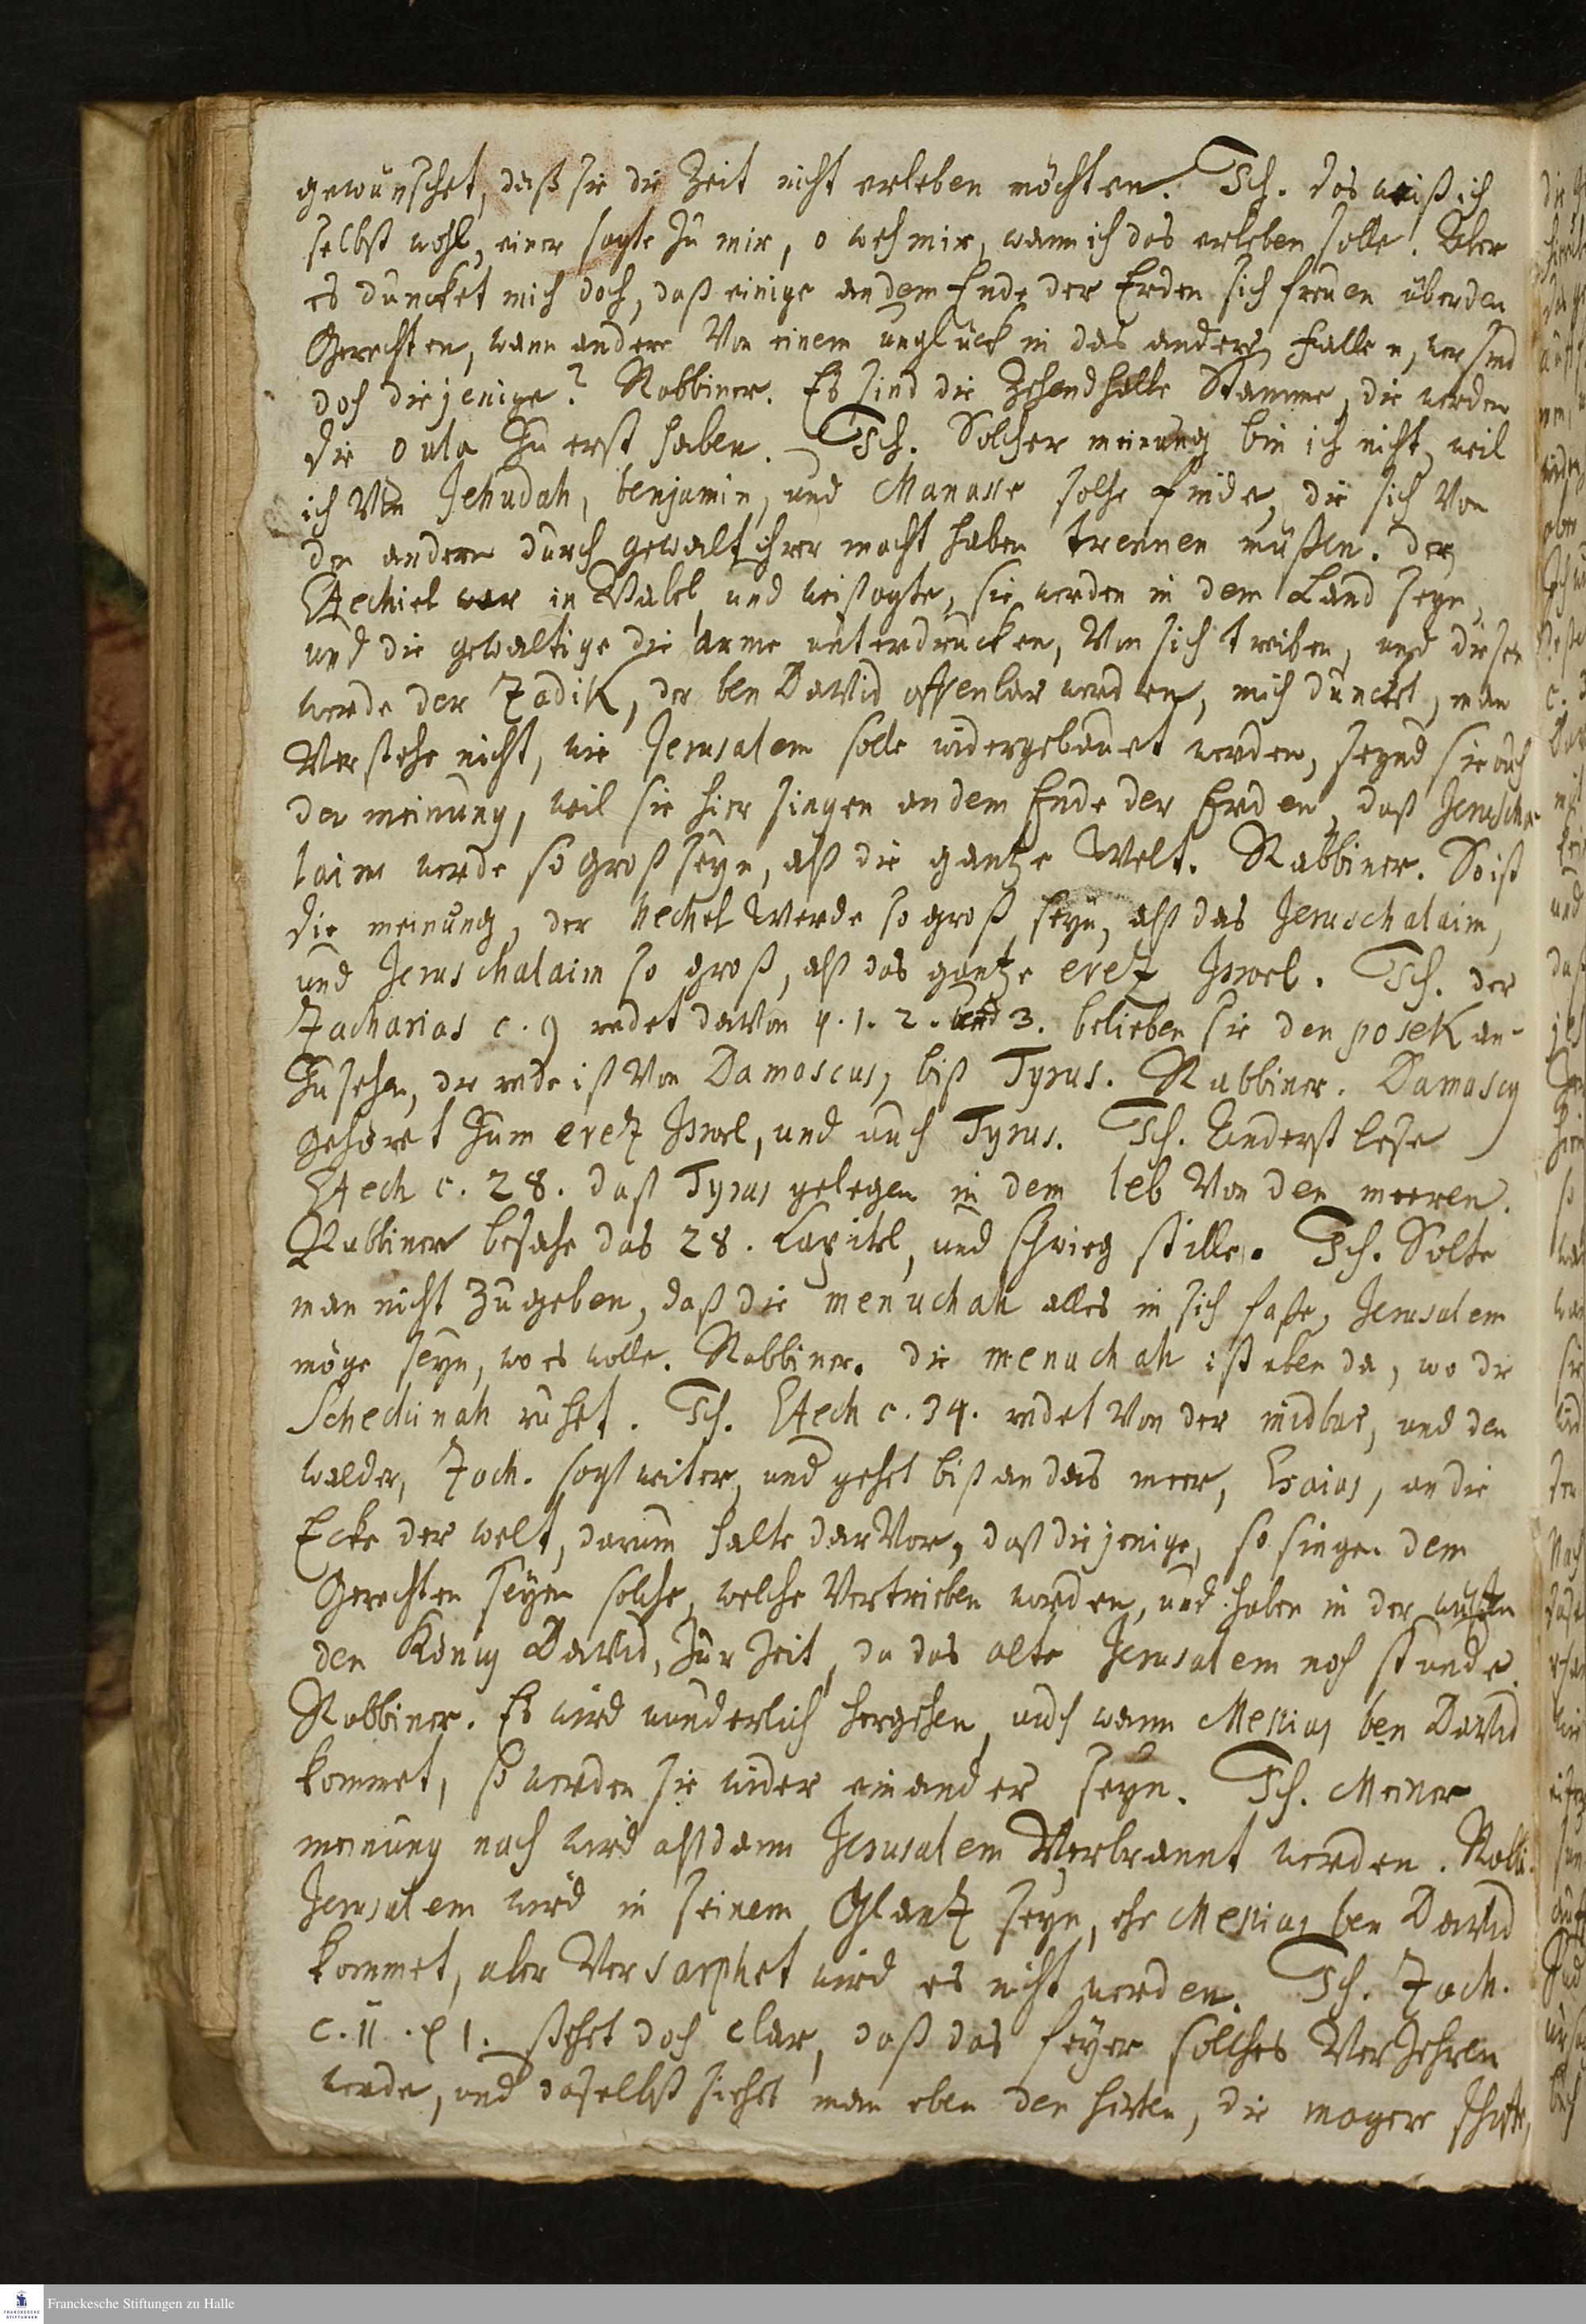 gewünschet, daß sie die Zeit nicht erleben möchten. Tsch. das weiß ich
selbst wohl, einer sagte zu mir, o weh mir, wann ich das erleben solle! Aber
es duncket mich doch, daß einige an dem Ende der Erden sich freuen über den
Gerechten, wann andere von einem unglück in das andere fallen, wer sind
doch diejenige? Rabbiner. Es sind die Zehendhalbe Stämme, die werden
die oula zu erst haben. Tsch. Solcher meinung bin ich nicht, weil
ich von Jehudah, benjamin, und Manasse solche finde, die sich von
den andern durch gewalt ihrer macht haben trennen müßen. der
Ezechiel war in Babel, und weissagte, sie werden in dem Land seyn,
und die gewaltige die arme unterdrucken, von sich treiben, und diesen
werde der Zadik, der ben David offenbar werden, mich duncket, man
verstehe nicht, wie Jerusalem solle widergebauet werden, seynd sie auch
der meinung, weil sie hier singen an dem Ende der Erden, daß Jeruscha-
laim werde so groß seyn, alß die gantze Welt. Rabbiner. So ist
die meinung, der hechel werde so groß seyn, alß das Jeruschalaim,
und Jeruschalaim so groß, alß das gantze erez Israel. Tsch. der
Zacharias c. 9 redet davon 1. 2. und 3. belieben sie den posek an-
zusehen, der rede ist von Damascus, biß Tyrus. Rabbiner. Damascus
gehöret zum erez Israel, und auch Tyrus. Tsch. Anderst lese
Ezech c. 28. daß Tyrus gelegen in dem leb von den meeren.
Rabbiner besahe das 28. Capitel, und schwieg stille. Tsch. Solte
man nicht zugeben, daß die menuchah alles in sich faße, Jerusalem
möge seyn, wo es wolle. Rabbiner. die menuchah ist eben da, wo die
Schechinah ruhet. Tsch. Ezech c. 34. redet von der midbar, und den
wälder, Zach. sagt weiter, und gehet biß an das meer, Esaias, an die
Ecke der welt, darum halte darvor, daß diejenige, so singen dem
Gerechten seyen solche, welche vertrieben worden, und haben in der wüsten
den König David, zur Zeit, da das alte Jerusalem noch stunde.
Rabbiner. Es wird wunderlich hergehen, auch wann Messias ben David
kommet, so werden sie wider einander seyn. Tsch. Meiner
meinung nach wird alßdann Jerusalem verbrannt werden. Rabbi.
Jerusalem wird in seinem Glantz seyn, ehe Messias ben David
kommet, aber versarphet wird es nicht werden. Tsch. Zach.
c. 11. 1. stehet doch clar, daß das feyer solches verzehren
werde, und daselbst siehet man eben den hirten, die magere schafe,
Franckesche Stiftungen zu Halle